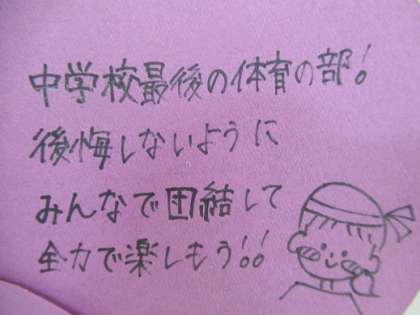 中学校最後の体育の部!
後悔しないように
みんなで団結して
全力で楽しもう!!